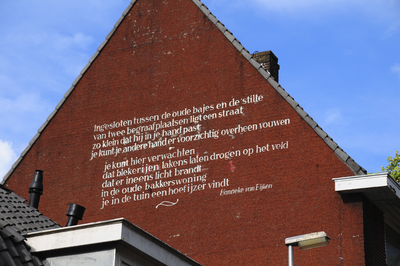 Ingesloten tussen de oude bajes en de stilte
van twee begraafplaatsen ligt een straat
zo klein dat hij in je hand past
je kunt je andere hand er voorzichtig overheen vouwen
je kunt hier verwachten
dat blekerijen lakens laten drogen op het veld
dat er ineens licht brandt
in de oude bakkerswoning
je in de tuin een hoefijzer vindt
Hanneke van Eijken